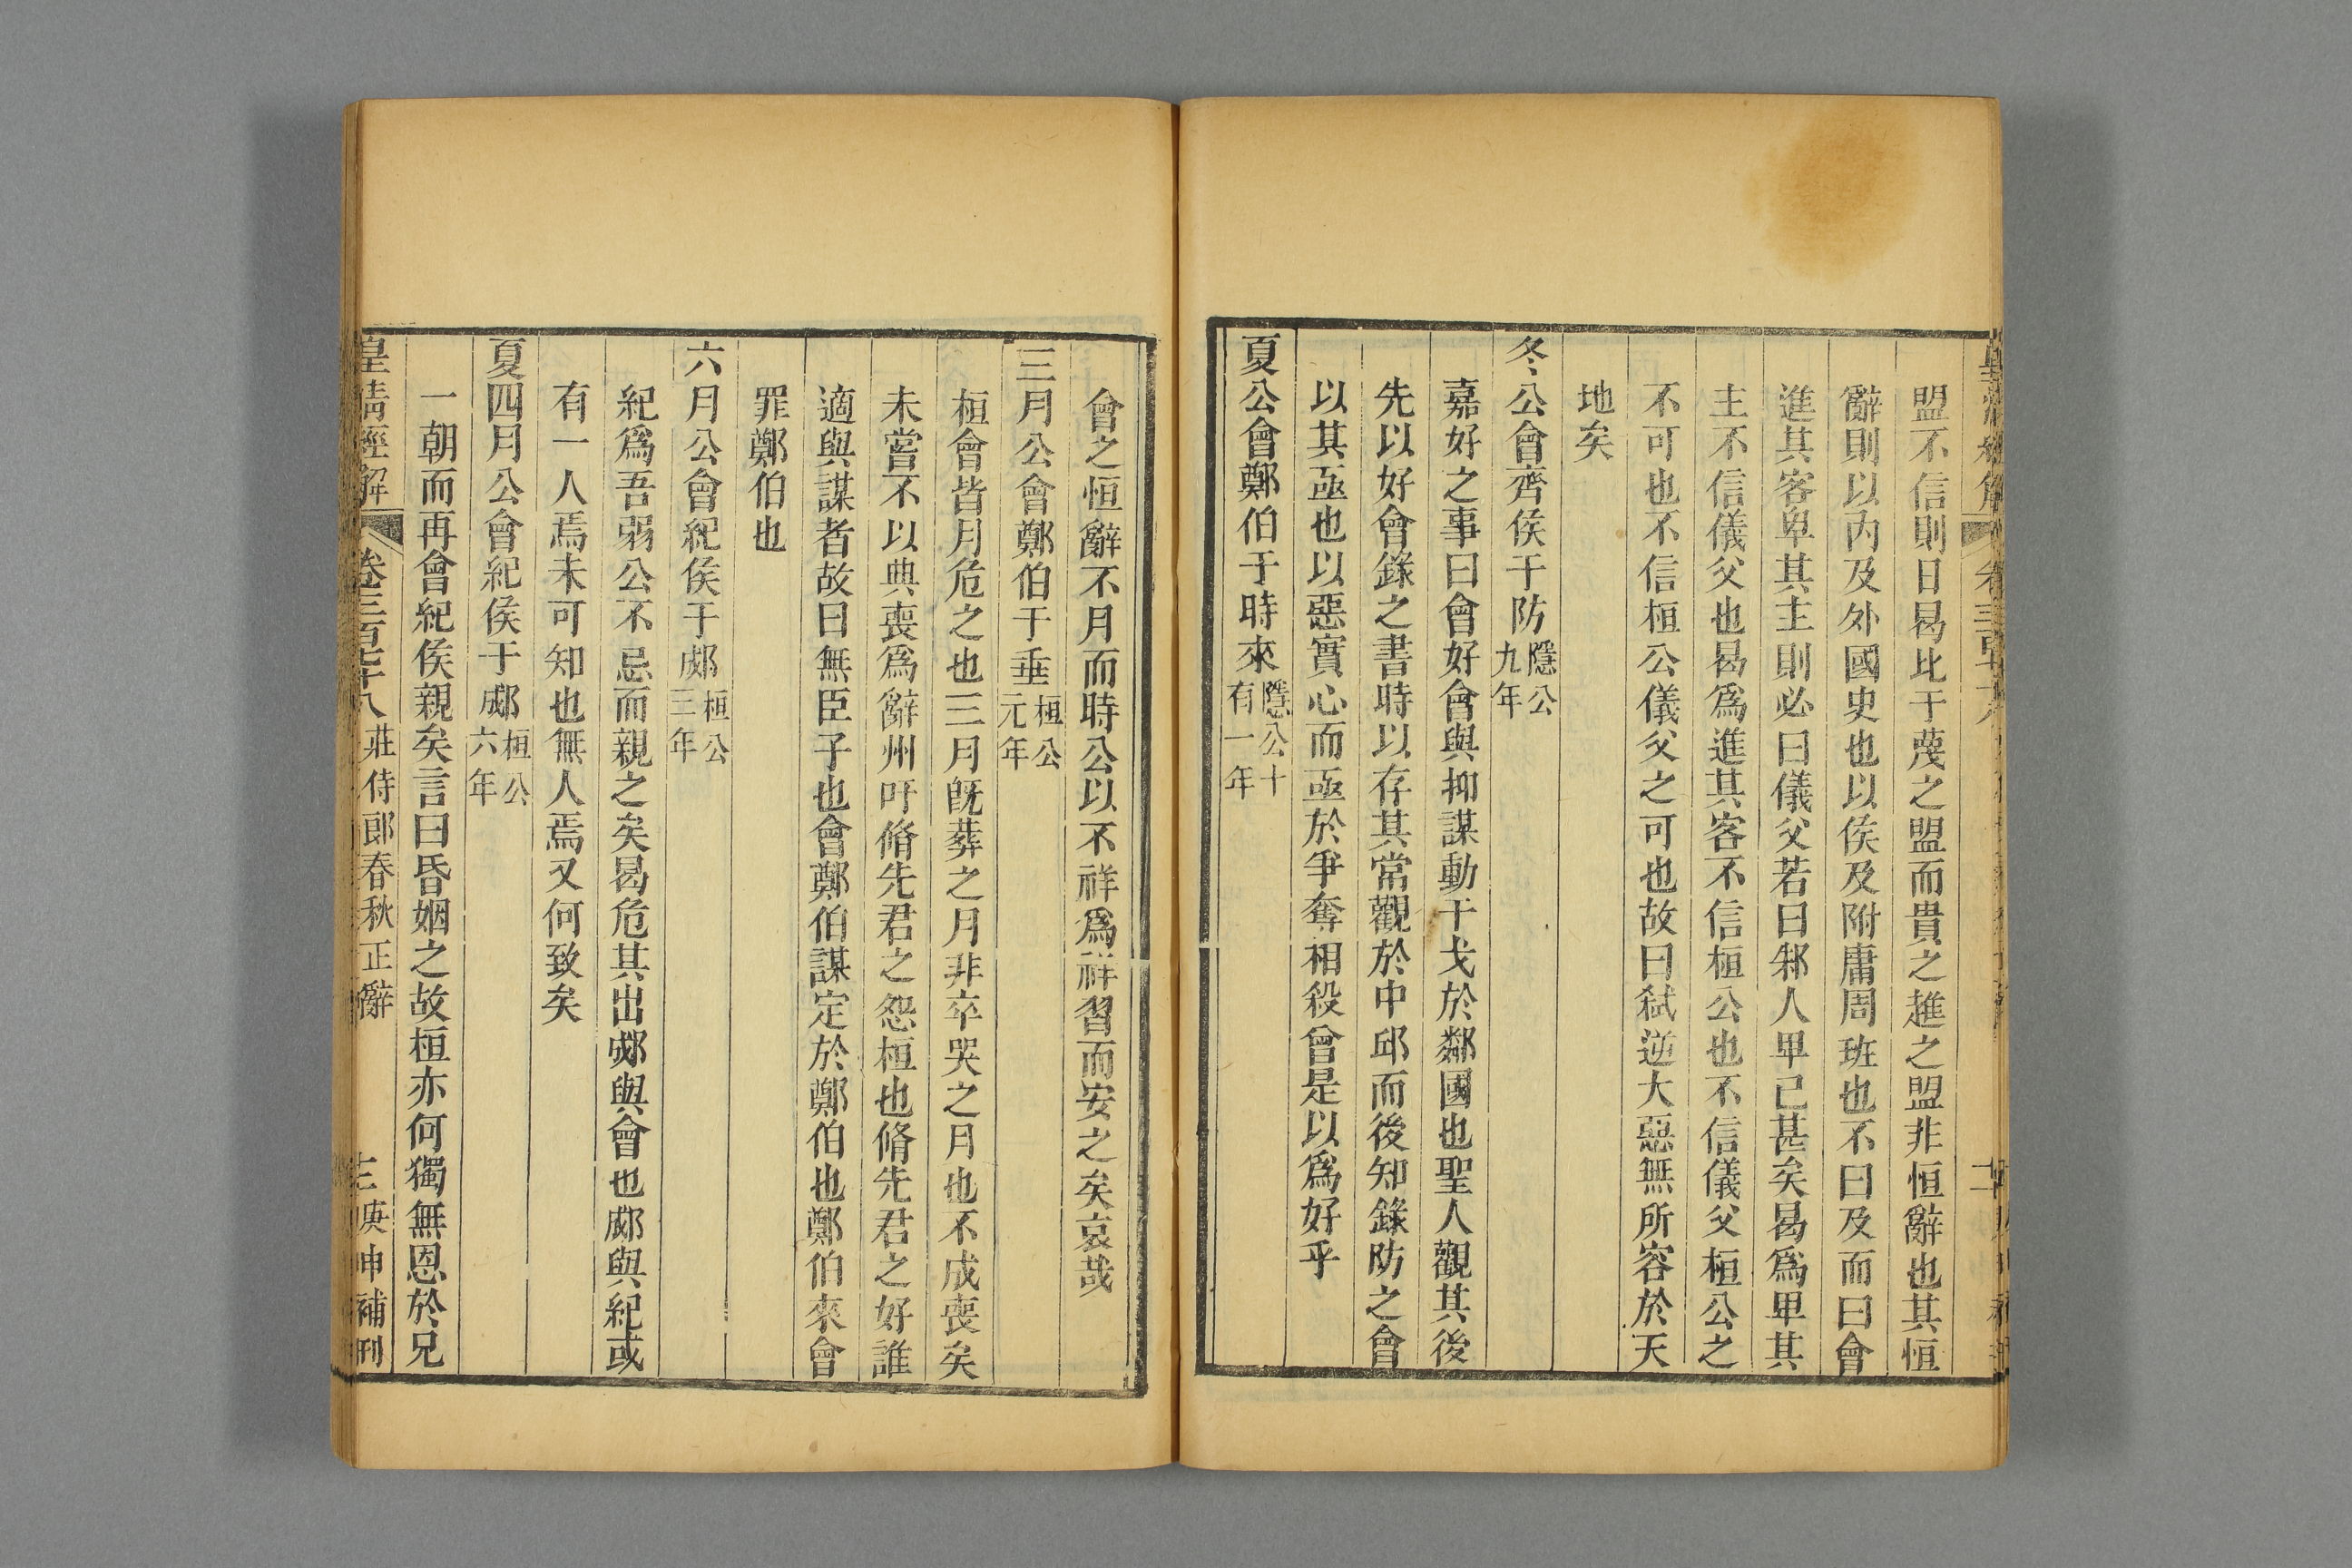 盟不信則日曷比于蔑之盟而貴之趡之盟非恒辭也其恒
辭則以內及外國史也以侯及附庸周班也不曰及而曰會
進其客卑其主則必曰儀父若曰邾人卑已甚矣曷爲卑其
主不信儀父也曷爲進其客不信桓公也不信儀父桓公之
不可也不信桓公儀父之可也故曰弑逆大惡無所容於天
地矣
冬公會齊侯于防隱公九年
嘉好之事曰會好會與抑謀動干戈於鄰國也聖人觀其後
先以好會錄之書時以存其常觀於中邱而後知錄防之會
以其亟也以惡實心而亟於爭奪相殺曾是以爲好乎
夏公會鄭伯于時來隱公十有一年
會之恒辭不月而時公以不祥爲祥習而安之矣哀哉
三月公會鄭伯于垂桓公元年
桓會皆月危之也三月旣葬之月非卒哭之月也不成喪矣
未嘗不以典喪爲辭州吁脩先君之怨桓也脩先君之好誰
適與謀者故曰無臣子也會鄭伯謀定於鄭伯也鄭伯來會
罪鄭伯也
六月公會紀侯于郕桓公三年
紀爲吾弱公不忌而親之矣曷危其出郕與會也郕與紀或
有一人焉未可知也無人焉又何致矣
夏四月公會紀侯于郕桓公六年
一朝而再會紀侯親矣言曰昏姻之故桓亦何獨無恩於兄
皇清經解 卷三百七十八 莊侍郎春秋正辭 庚申補刊